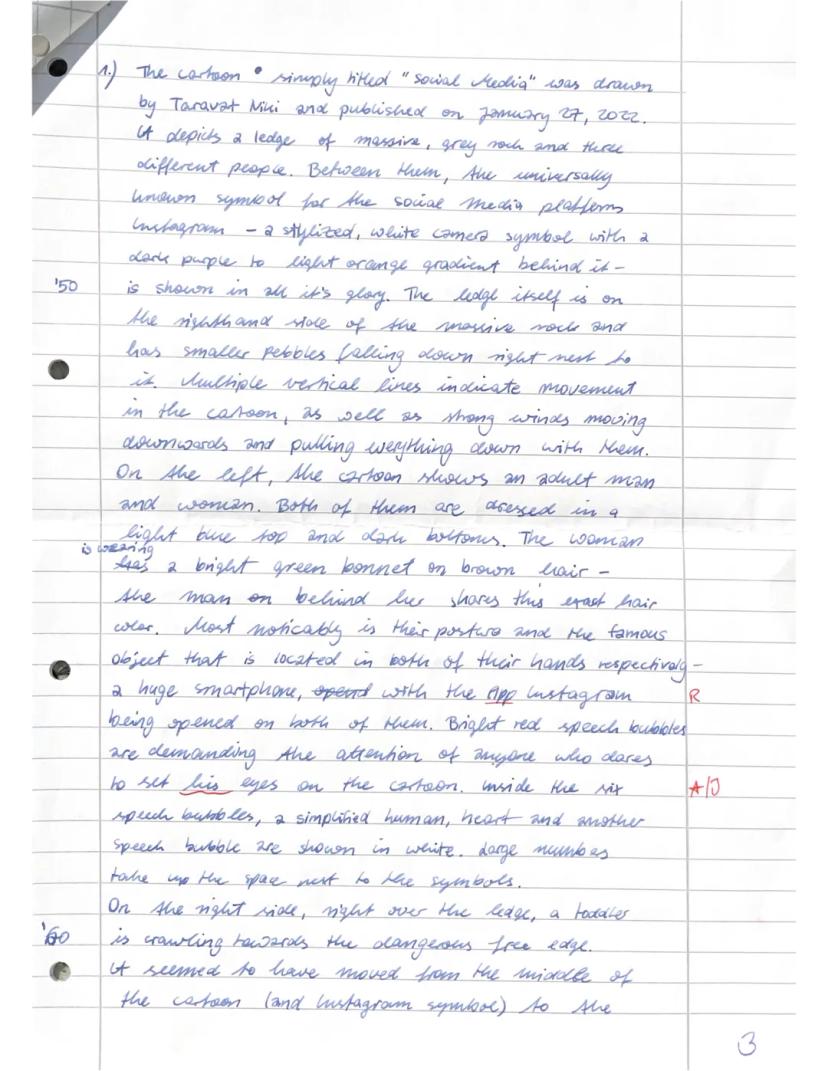 1.) The cartoon simply titled "Social Media" was drawn
by Taravat Niki and published on January 27, 2022.
It depicts a ledge of massive, grey rock and three
different people. Between them, the universally
known symbol for the social media platform
Instagram – a stylized, white camera symbol with a
dark purple to light orange gradient behind it –
'50 is shown in all it's glory. The ledge itself is on
the righthand side of the massive rock and
has smaller pebbles falling down right next to
it. Multiple vertical lines indicate movement
in the cartoon, as well as strong winds moving
downwards and pulling everything down with them.
On the left, the cartoon shows an adult man
and woman. Both of them are dressed in a
light blue top and dark bottoms. The woman
is wearing
has a bright green bonnet on brown hair –
the man on behind her shares this exact hair
color. Most noticably is their posture and the famous
object that is located in both of their hands respectively –
a huge smartphone, opend with the App Instagram R
being opened on both of them. Bright red speech bubbles
are demanding the attention of anyone who dares
to set his eyes on the cartoon. Inside the six A/J
speech bubbles, a simplified human, heart and another
speech bubble are shown in white. Large numbers
take up the space next to the symbols.
On the right side, right over the ledge, a toddler
'60 is crawling towards the dangerous free edge.
It seemed to have moved from the middle of
the cartoon (and Instagram symbol) to the
3